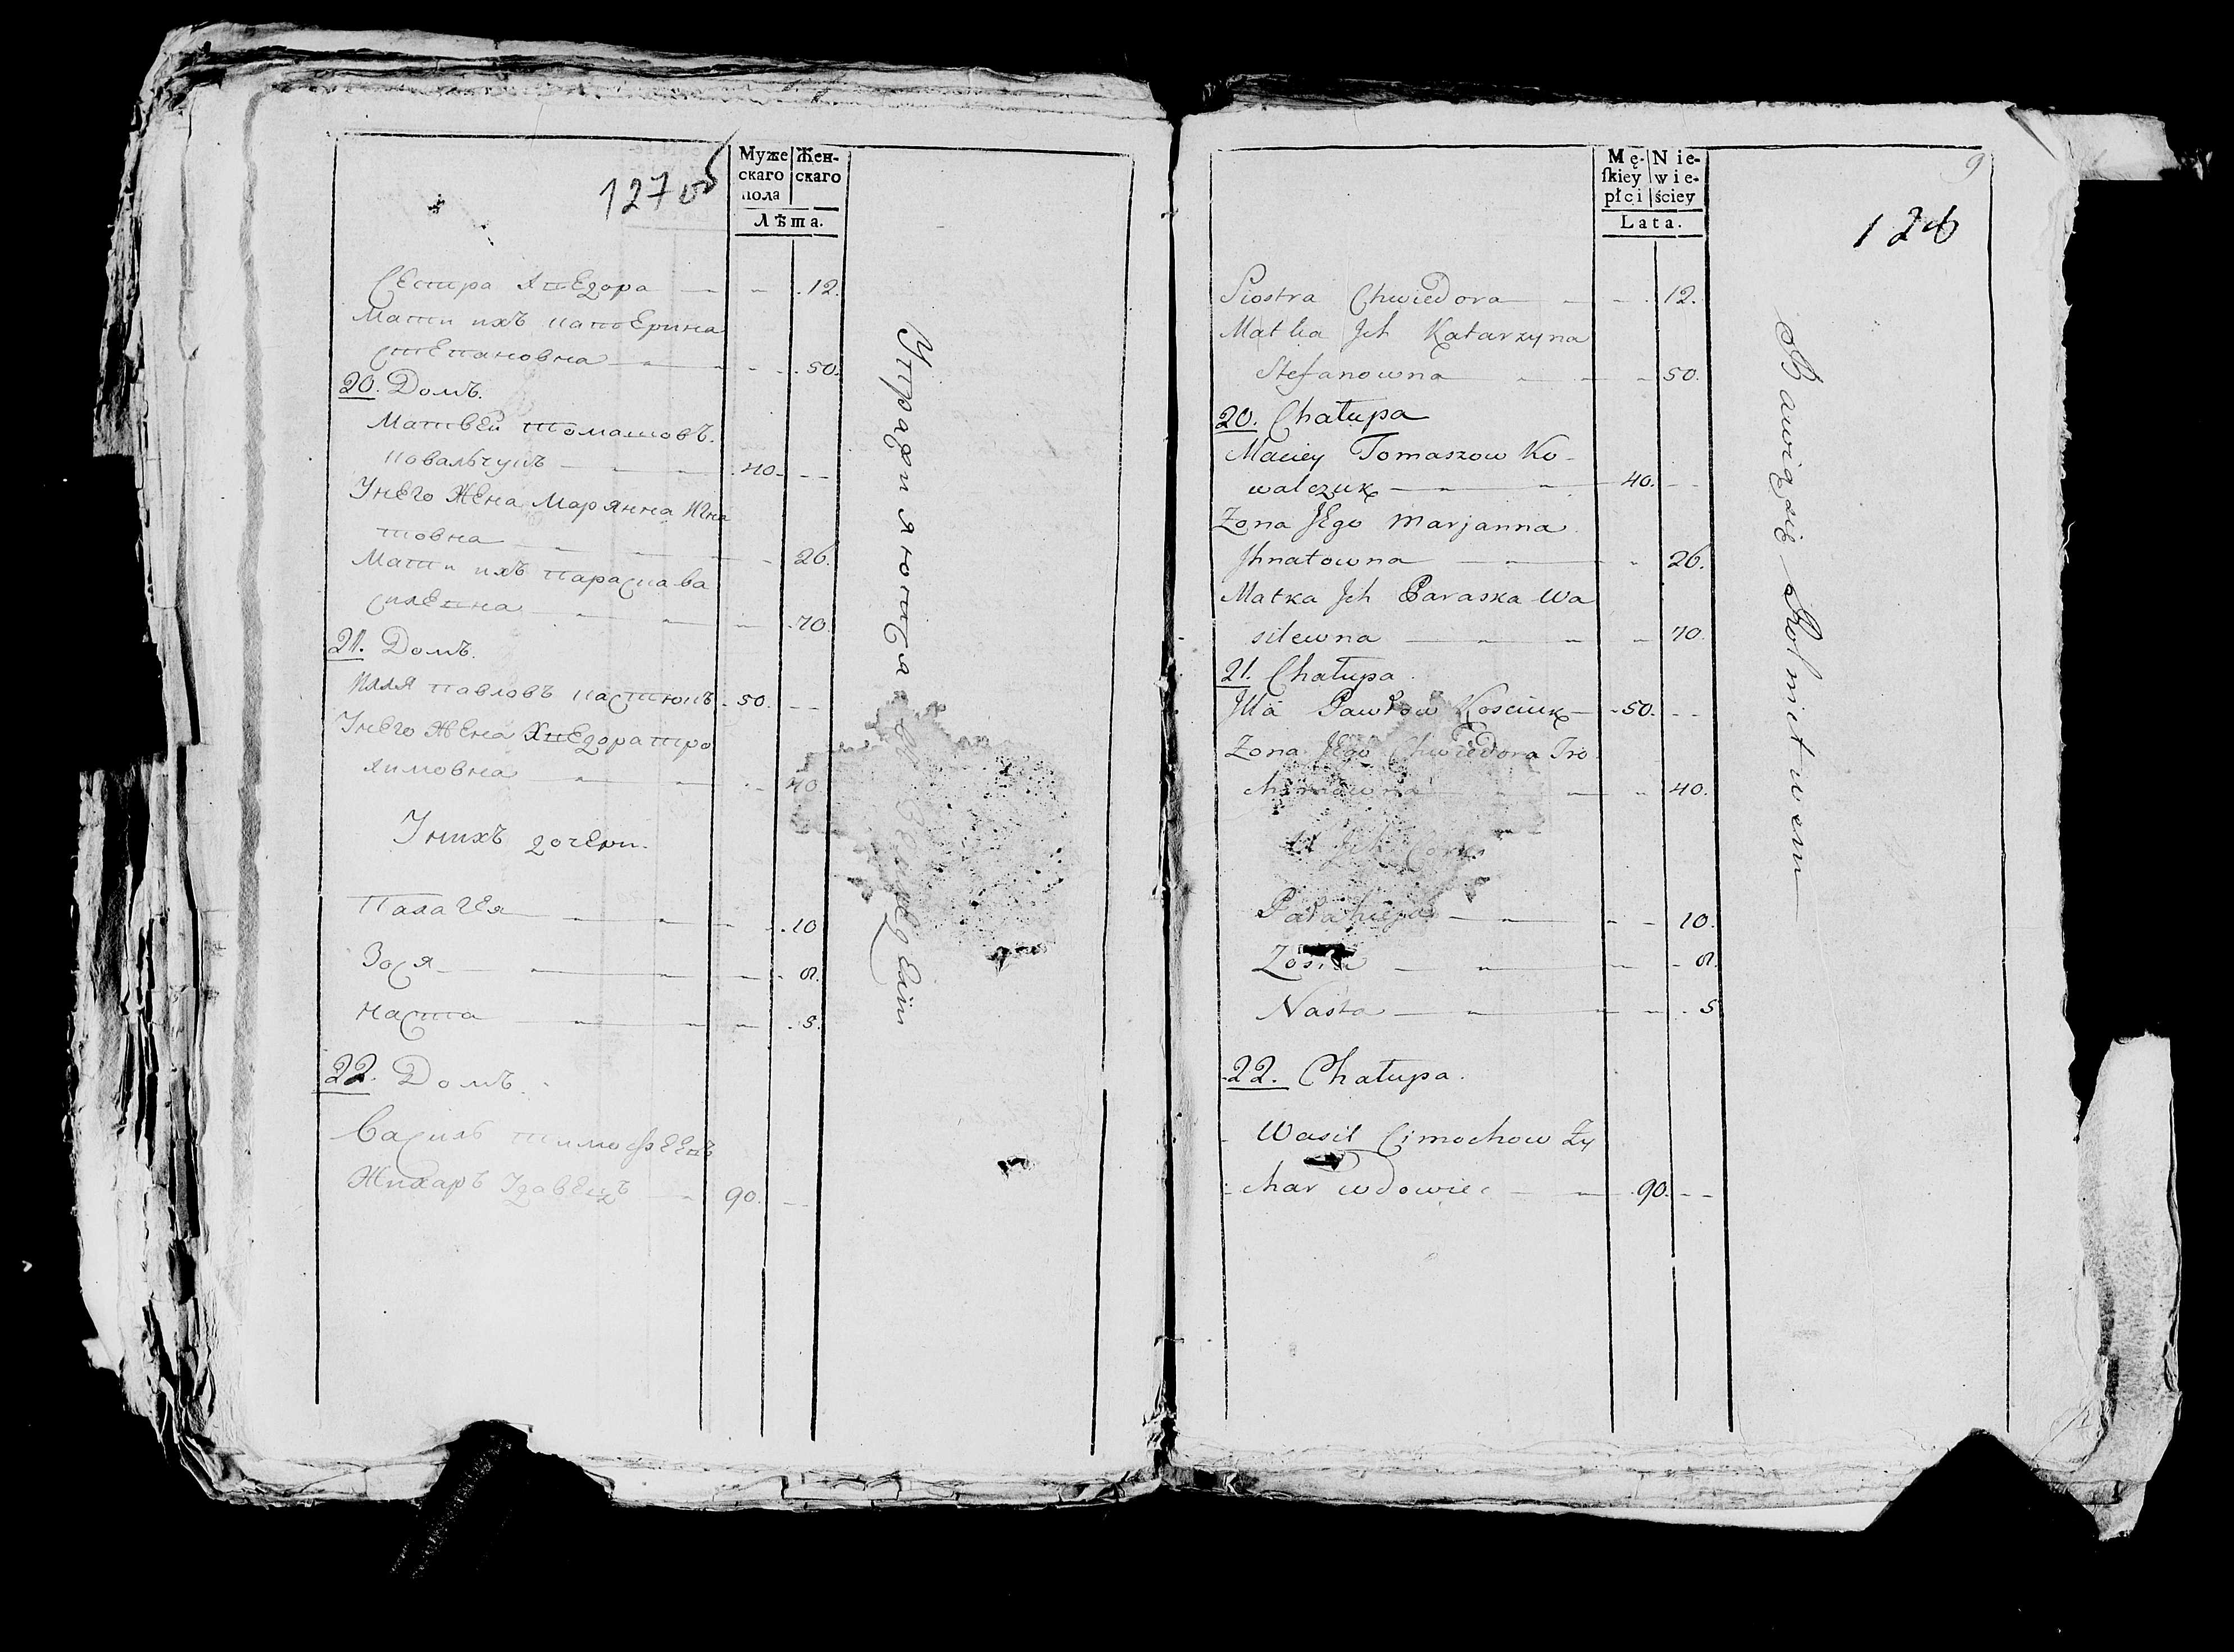 127 об
Муже
скаго
пола
Жен-
скаго
Лѣта.
Сестра Хведора 12.
Мати ихъ катерина
степановна 50.
20. Домъ.
Матвей томашовъ.
ковальчукъ 40.
Унего жена Марянна Игна
товна 26.
Мати ихъ параска ва
силевна 70.
21. Домъ.
Илля павловъ костюкъ 50.
Унего жена Хведора тро
химовна 40
Унихъ дочери.
Палагея 10
Зося 8.
наста 5.
22. Домъ.
Василь тимофеевъ
Жихаръ Удавецъ 90.
Упражняются в Земледелии
Mę-
skiey
płci
Nie-
wie-
ściey
Lata.
9
126
Siostra Chwiedora 12.
Matka Jch Katarzyna
Stefanowna 50.
20. Chałupa
Maciey Tomaszow Ko-
walczuk 40.
Zona JEgo Marjanna
Jhnatowna 26.
Matka Jch Paraska Wa
silewna 70.
21. Chałupa.
Jlla Pawłow Kosciuk 50.
Zona JEgo Chwiedora Tro
chimowna 40.
U Jch Corki
Pałahieja 10.
Zosia 8.
Nasta 5
22. Chałupa.
Wasil Cimochow Zy
char wdowiec 90.
Bawią się Rolnictwem